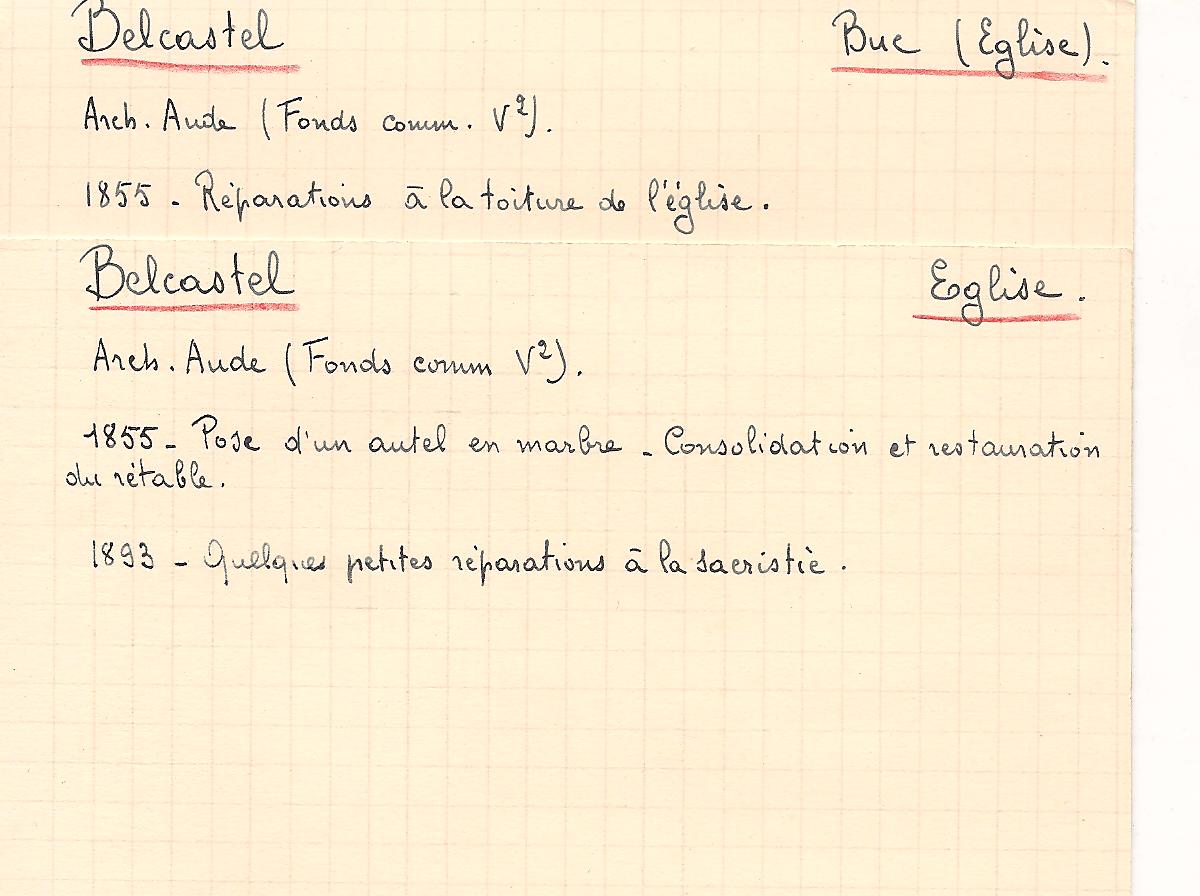 Belcastel Buc (Eglise).
Arch. Aude (Fonds comm. V²).
1855 - Réparations à la toiture de l'église.
Belcastel Eglise.
Arch. Aude (Fonds comm V²).
1855 - Pose d'un autel en marbre - Consolidation et restauration
du rétable.
1893 - Quelques petites réparations à la sacristie.